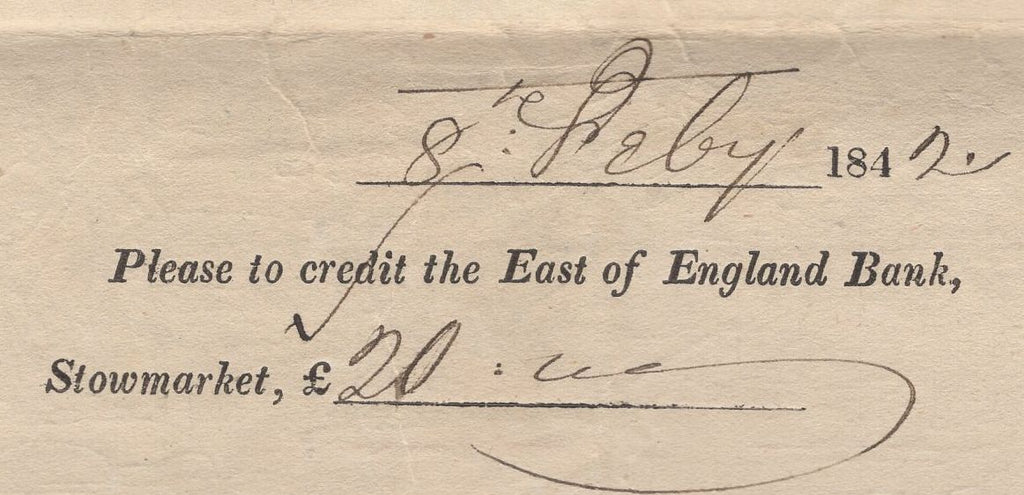 8th: Feby 1842.
Please to credit the East of England Bank,
Stowmarket, £20 :